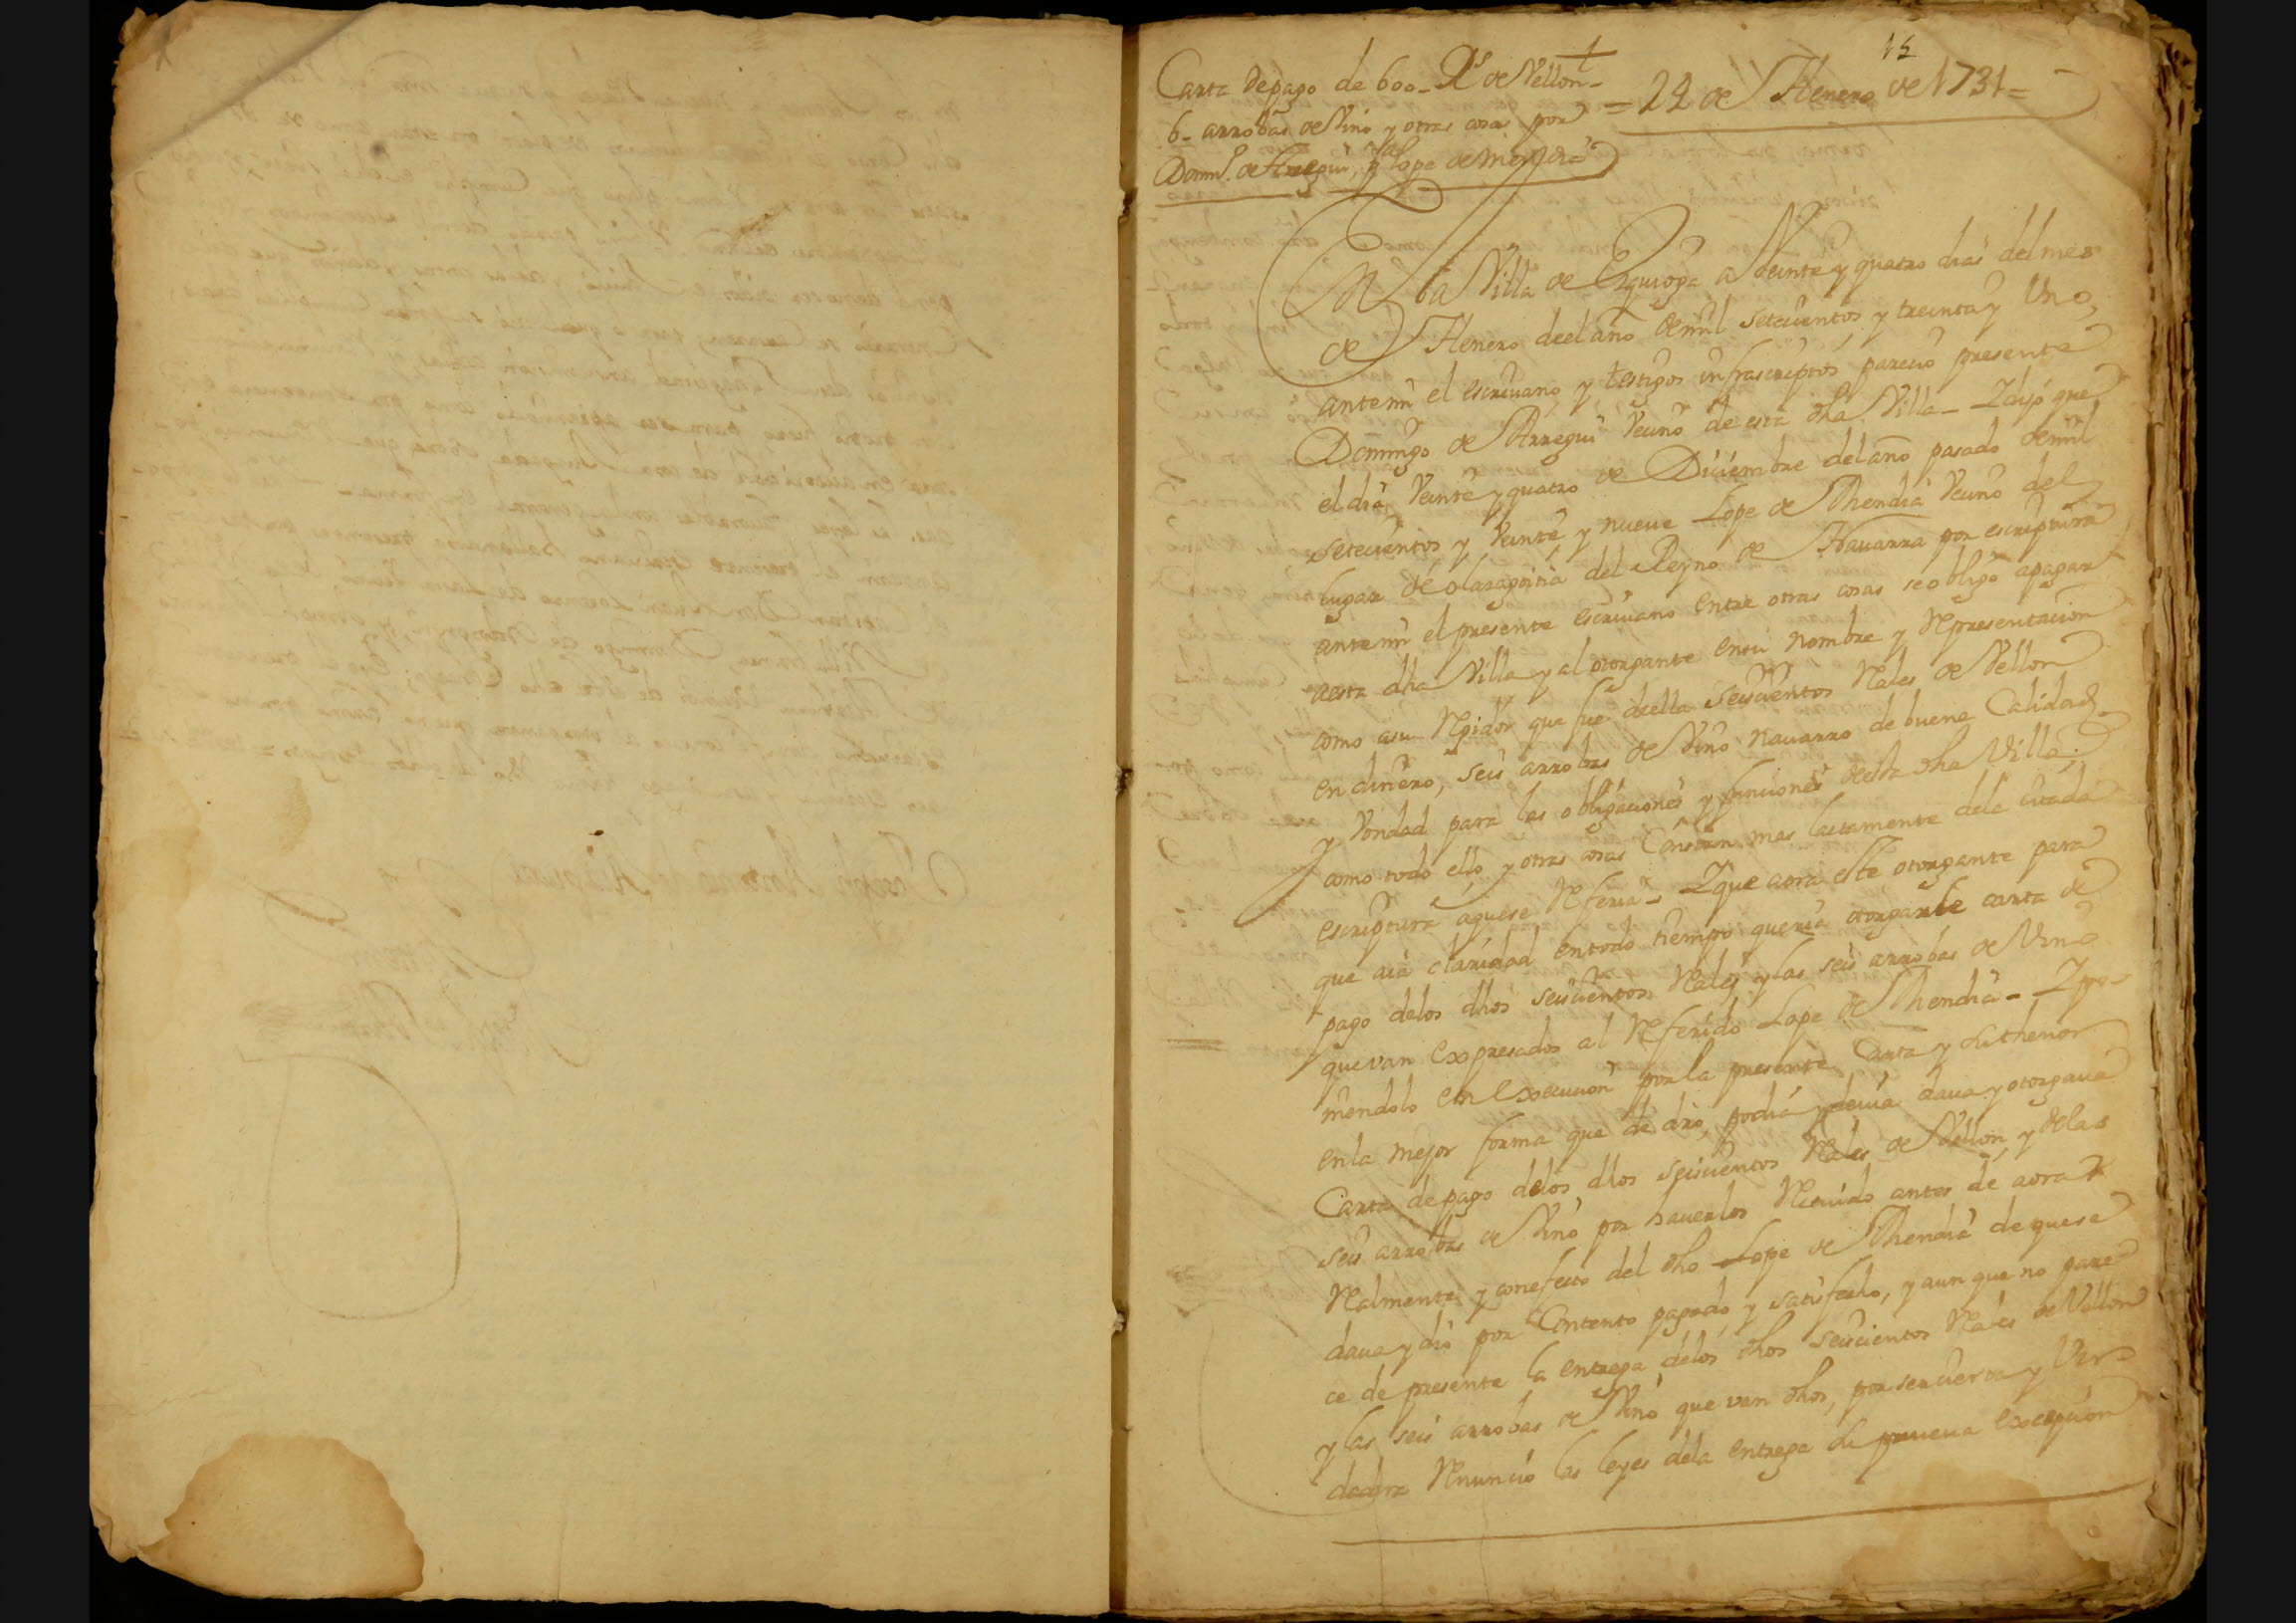 15
Carta de pago de 600- Rs de Vellon-
6- arrobas de Vino y otras cosas por
Domingo de Arregui, a Lope de Mendia
= 24 de Henero de 1731=
En la Villa de Ezquioga a Veinte y quatro dias del mes
de Henero de el año de mil setecientos y treinta y Uno,
ante mi el escriuano y testigos infrascriptos parecio presente
Domingo de Arregui Vecino de esta dha Villa- Y dijo que
el dia Veinte y quatro de Diciembre del año pasado de mil
setecientos y Veinte y nueue Lope de Mendia Vecino del
lugar de olazagoitia del Reyno de Nauarra por escriptura
ante mi el presente escriuano entre otras cosas se obligo apagar
aesta dha Villa y al otorgante en su nombre y Representacion
como asu Rejidor que fue de ella seiscientos Reales de Vellon
en dinero, seis arrobas de Vino nauarro de buena Calidad
y Vondad para las obligaciones y funciones de esta dha Villa,
como todo ello y otras cosas Constan mas lactamente de la citada
escriptura aquese Referia- Y que aora este otorgante para
que aia claridad en todo tiempo queria otorgarle carta de
pago delos dhos seiscientos Reales y las seis arrobas de Vino
que van expresados al Referido Lope de Mendia- Y po-
niendolo en execucion por la presente Carta y su thenor
en la mejor forma que de dro, podia y deuia daua y otorgaua
Carta de pago delos dhos seiscientos Reales de Vellon, y de las
seis arrobas de Vino por hauerlos Reciuido antes de aora
Realmente y con efecto del dho Lope de Mendia de que se
daua y dio por Contento pagado y satisfecho, y aun que no pare
ce de presente la entrega delos dhos seiscientos Reales de Vellon
y las seis arrobas de Vino que van dhos, por ser cierta y Ver-
dadera Renuncio las leyes dela entrega su prueua excepcion